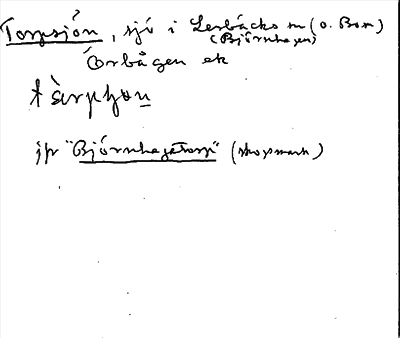 Torpsjön, sjö i Lerbäcks sn (o. Bom)
(Björnhagen)
Örbågen ek
tàrpʃɔn
jfr "Björnhagatorp" (skogsmark)